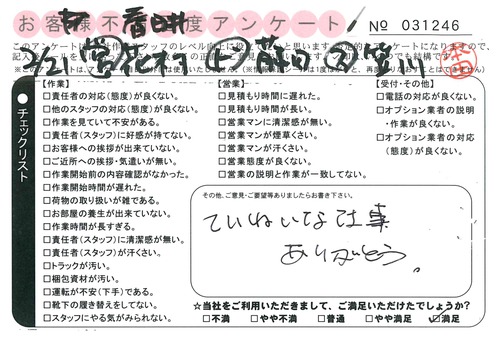 お客様不満度アンケート
No 031246
チェックリスト
【作業】
□責任者の対応(態度)が良くない。
□他のスタッフの対応(態度)が良くない。
□作業を見ていて不安がある。
□責任者(スタッフ)に好感が持てない。
□お客様への挨拶が出来ていない。
□ご近所への挨拶・気遣いが無い。
□作業開始前の内容確認がなかった。
□作業開始時間が遅れた。
□荷物の取り扱いが雑である。
□お部屋の養生が出来ていない。
□作業時間が長すぎる。
□責任者(スタッフ)に清潔感が無い。
□責任者(スタッフ)が汗くさい。
□トラックが汚い。
□梱包資材が汚い。
□運転が不安(下手)である。
□靴下の履き替えをしてない。
□スタッフにやる気がみられない。
【営業】
□見積もり時間に遅れた。
□見積もり時間が長い。
□営業マンに清潔感が無い。
□営業マンが煙草くさい。
□営業マンが汗くさい。
□営業態度が良くない。
□営業の説明と作業が一致してない。
【受付・その他】
□電話の対応が良くない。
□オプション業者の説明
・作業が良くない。
□オプション業者の対応
(態度)が良くない。
その他、ご意見・ご要望等ありましたらお書き下さい。
ていねいな仕事
ありがとう。
☆当社をご利用いただきまして、ご満足いただけたでしょうか?
□不満 □やや不満 □普通 □やや満足 ☑満足